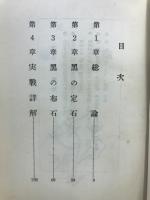 目次
第1章 総論
第2章 黒の定石
第3章 黒の布石
第4章 実戦詳解